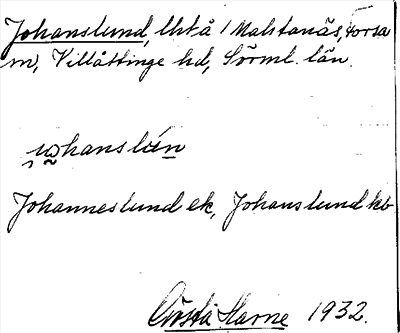 Johanslund, lht å 1 Malstanäs, Torsa
sn, Villåttinge hd, Sörml. län.
johanslún
Johanneslund ek, Johanslund kb
Gösta Harne 1932.